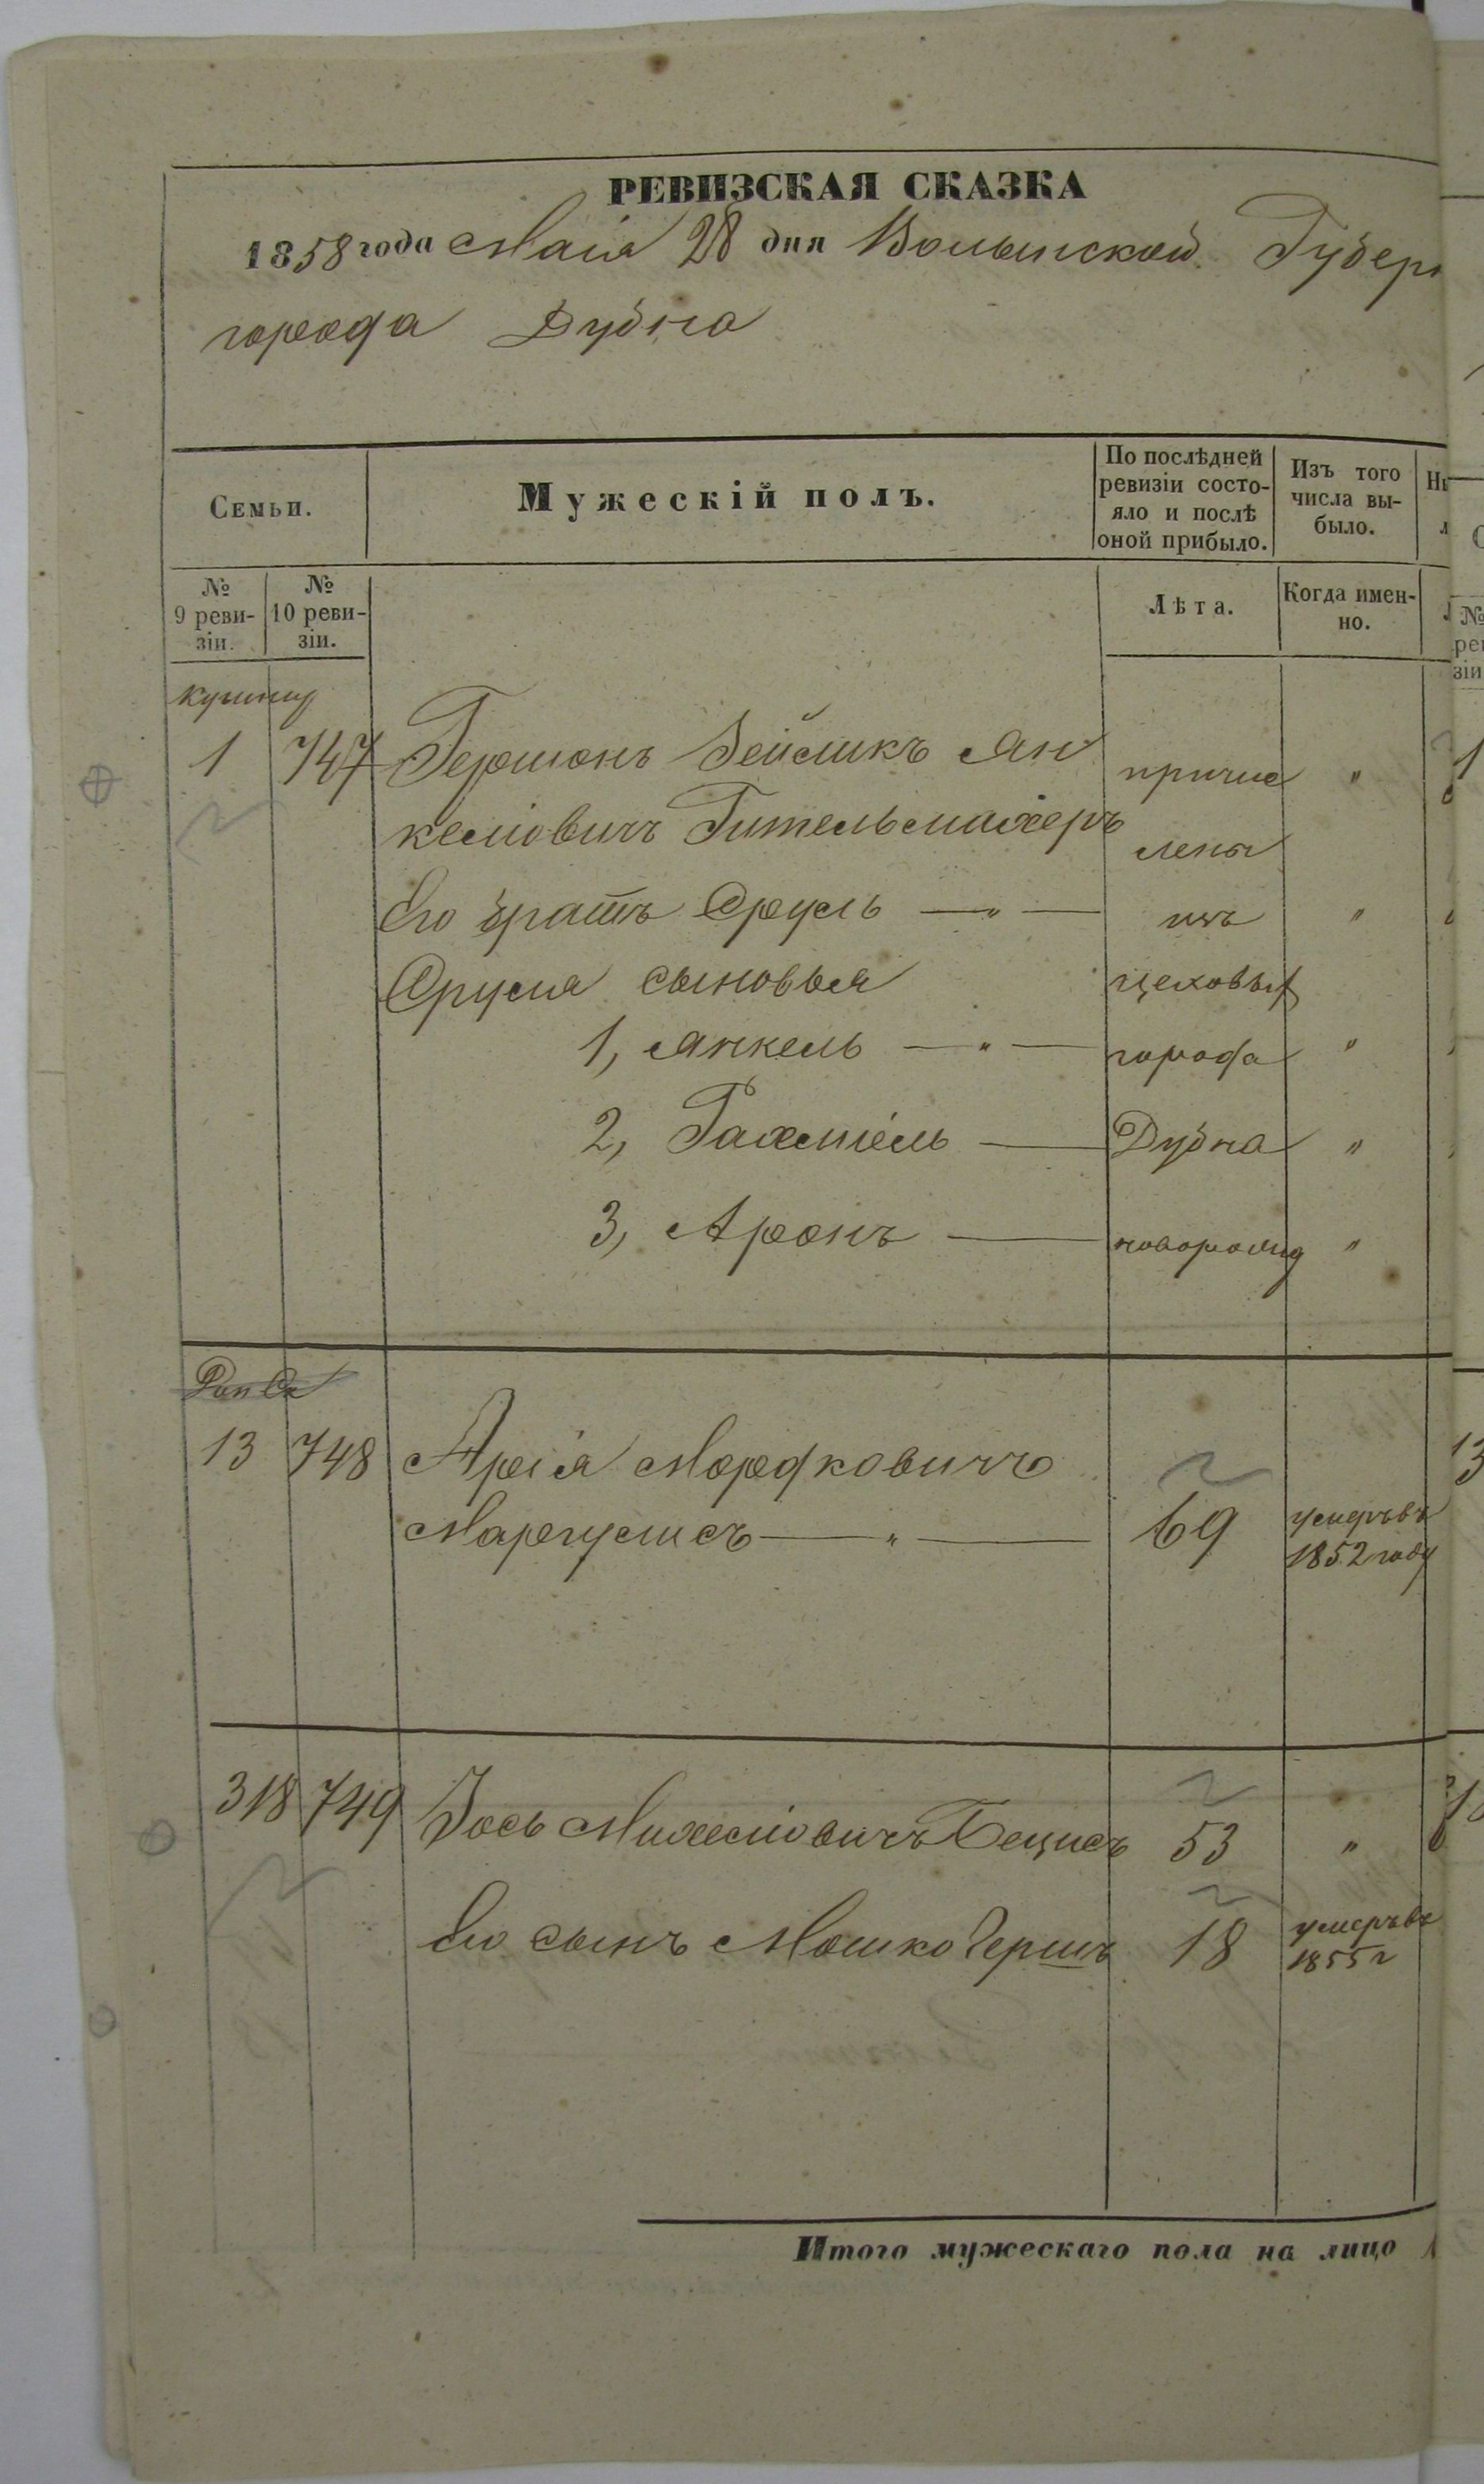 РЕВИЗСКАЯ СКАЗКА
1858 года Маія 28 дня Волынской Губерн
города Дубна
Семьи.
Мужескій полъ.
По послѣдней ревизіи состо-
яло и послѣ оной прибыло.
Изъ того числа вы-
было.
№ 9 реви-
зіи.
№ 10 реви-
зіи.
Лѣта.
Когда имен-
но.
1 747 Гершонъ Зейликъ Ян причис "
келіовичъ Гительмахеръ лены
Его братъ Сруль — " — изъ "
Сруля сыновья цеховых
1, Янкель — " — города "
2, Рахміель — Дубна "
3, Аронъ — новорожд "
13 748 Арія Мордковичъ
Маргулисъ — " — 69 умеръ въ
1852 году
318 749 Іось Михелiовичъ Бецисъ 53 "
Его сынъ Мошко Гершъ 18 умеръ въ
1855 г
Итого мужескаго пола на лицо